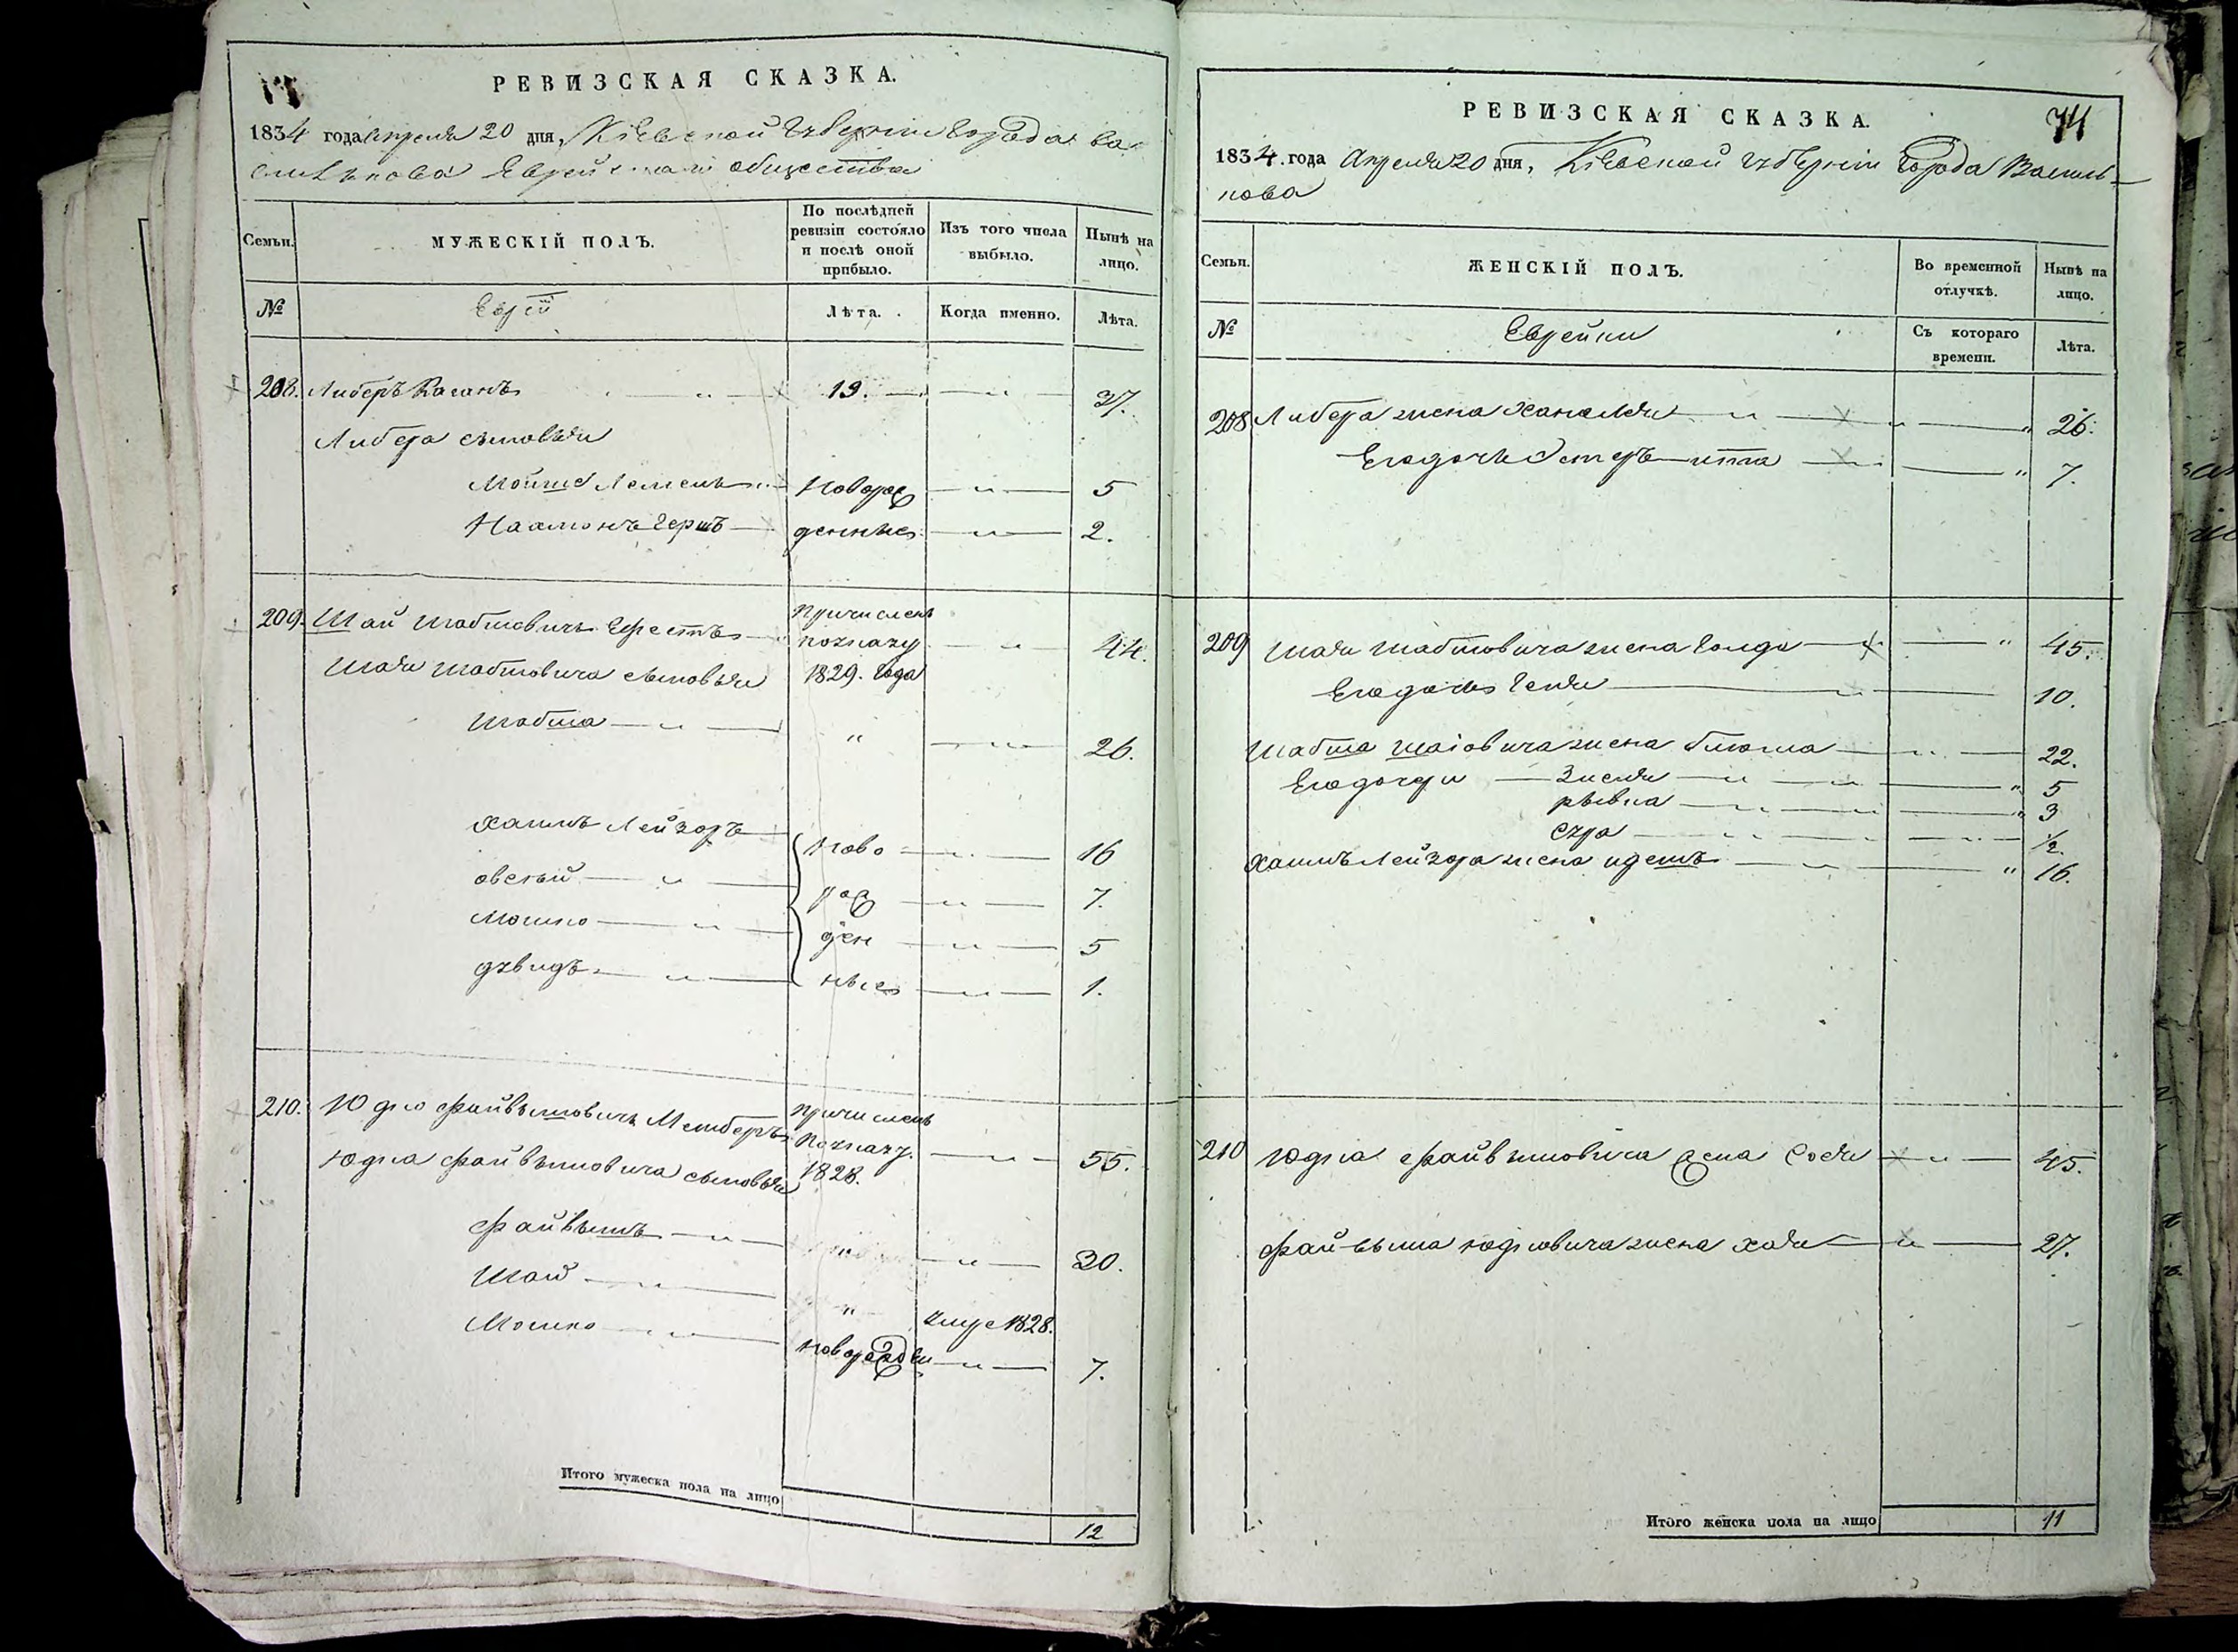 РЕВИЗСКАЯ СКАЗКА.
1834 года Апреля 20 дня, Кіевской Губерніи Города Ва
силькова Еврейскаго общества
Семьи.
МУЖЕСКІЙ ПОЛЪ.
По послѣдней ревизіи состояло и послѣ оной прибыло.
Изъ того числа выбыло.
Нынѣ на лицо.
№
Еврей
Лѣта.
Когда именно.
Лѣта.
208. Либеръ Каганъ 19. 37.
Либера сыновья
Мойше Лемель Новорож 5
Нахманъ Гершъ денные 2.
209. Шая Шабтовичъ причисленъ
по указу 44.
Шаи Шабтовича сыновья 1829. года
Шабта " 26.
Хаимъ Лейзоръ Ново 16
овсѣй рож 7.
Мошко ден 5
дувидъ ные 1.
210. Юдко Файвышовичъ причисленъ
по указу. 55.
Юдка Файвышовича сыновья 1828.
Файвышъ " 30.
Шая " умре 1828.
Мошко новорожден 7.
Итого мужеска пола на лицо
12
РЕВИЗСКАЯ СКАЗКА.
1834. года Апреля 20 дня, Кіевской Губерніи Города Василь-
кова
Семьи.
ЖЕНСКІЙ ПОЛЪ.
Во временной отлучкѣ.
Нынѣ на лицо.
№
Еврейки
Съ котораго времени.
Лѣта.
208 Либера жена Хана Лея " 26.
Его дочь Эстеръ " 7.
209 Шаи Шабтовича жена Голда " 45.
Его дочь Геня 10.
Шабта Шаіовича жена Блюма 22.
Его дочери Зисля " 5
рывка " 3
Сура 1/2.
Хаимъ Лейзора жена " 16.
210 Юдка Файвышовича жена Сося 45.
Файвыша Юдковича жена Хая 27.
Итого женска пола на лицо
11